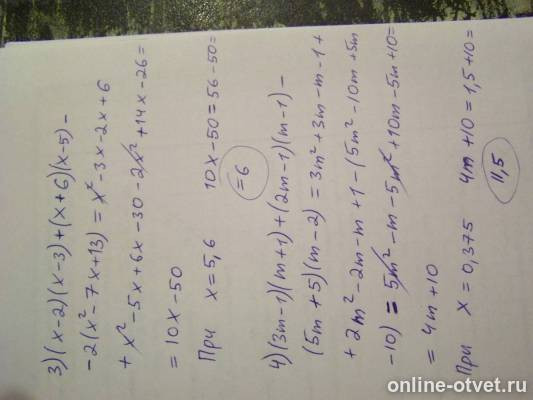 3) (x-2)(x-3)+(x+6)(x-5)-
-2(x²-7x+13)=x²-3x-2x+6
+x²-5x+6x-30-2x²+14x-26=
=10x-50
При x=5,6 10x-50=56-50=
=6
4) (3m-1)(m+1)+(2m-1)(m-1)-
(5m+5)(m-2)=3m²+3m-m-1+
+2m²-2m-m+1-(5m²-10m+5m
-10)=5m²-m-5m²+10m-5m+10=
=4m+10
При x=0,375 4m+10=1,5+10=
11,5
online-otvet.ru